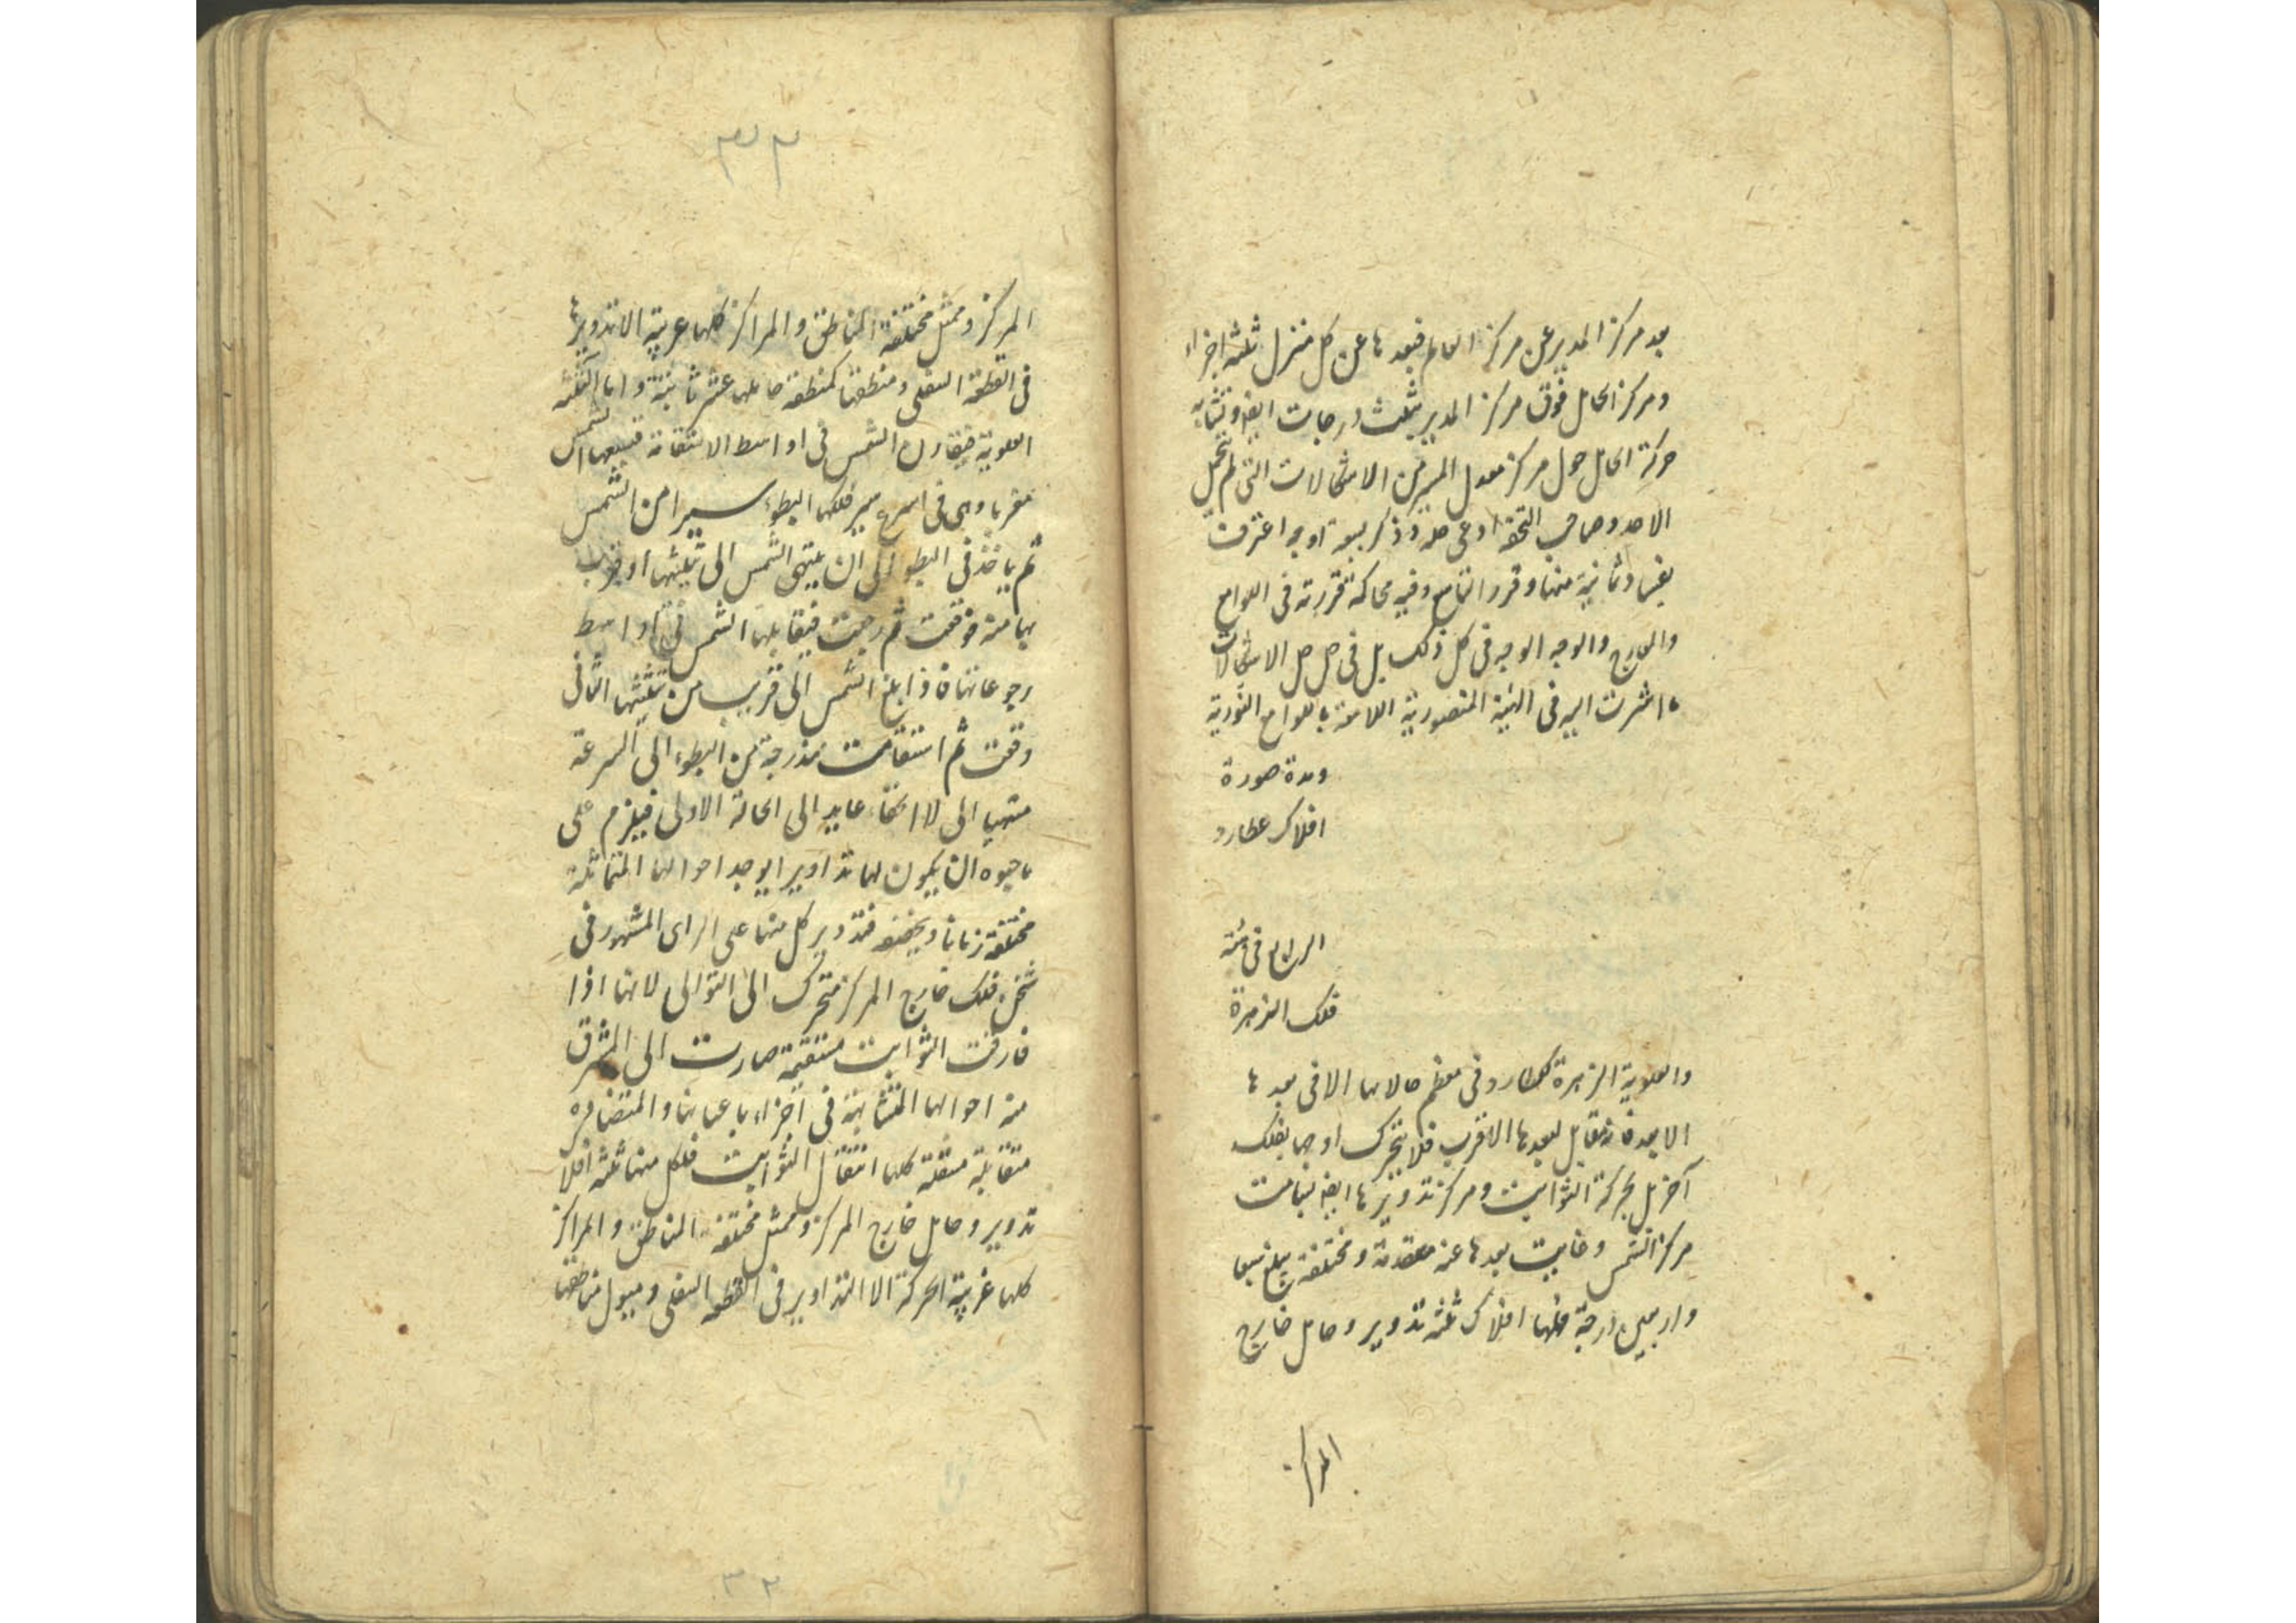 بعد مركز المدير عن مركز العالم فبعدها عن كل منزل ثلثة اجزاء
ومركز الحامل فوق مركز المدير بثلث درجات ايضا وتشابه
حركة الحامل حول مركز معدل المسير من الاشكالات التى لم تنحل
الاحد وصاحب التحفة ادعى حله وذكر سبعة اوجه اعترف
بفساد ثمانية منها وقرر التاسع وفيه محاكمة قررته فى اللوامع
والمعارج والوجه الوجيه فى كل ذلك بل فى حل جل الاشكالات
ما اشرت اليه فى الهيئة المنصورية اللامعة باللوامع النورية
وهذه صورة
افلاك عطارد
الرابع فى هيئة
فلك الزهرة
والعلوية الزهرة كعطارد فى معظم حالاتها الا فى بعدها
الابعد فانه مقابل لبعدها الاقرب فلا يتحرك اوجها بفلك
آخر بل بحركة الثوابت ومركز تدويرها ايضا يسامت
مركز الشمس وغايت بعدها عنه متقدمة ومختلفة يبلغ سبعا
واربعين درجة فلها افلاك ثلثة تدوير وحامل خارج
المركز
٣٢
المركز وممثل مختلفة المناطق والمراكز كلها غربية الا تدويرها
فى القطعة السفلى ومنطقتها كمنطقة حاملها عشر ثانية واما الثلثة
العلوية فيقارن الشمس فى اواسط الاستقامة فيسبقها الشمس
مغربا وهى فى اسرع سير فلكها البطوء سيرا من الشمس
ثم ياخذ فى البطوء الى ان ينتهى الشمس الى تثليثها او يقرب
بها منه فوقفت ثم رجعت فيقابلها الشمس فى اواسط
رجوعاتها فاذا بلغ الشمس الى قريب من تثليثها الثانى
وقفت ثم استقامت متدرجة من البطوء الى السرعة
منتهيا الى الاختفاء عايد الى الحالة الاولى فيلزم على
ما حبوه ان يكون لها تداوير ايوجد احوالها المتماثلة
مختلفة زمانا وبعضه فتدوير كل منها على الراى المشهور فى
ثخن فلك خارج المركز متحرك الى التوالى لانها اذا
فارقت الثوابت مستقيمة صارت الى المشرق
منه احوالها المتشابهة فى اجزاء باعيانها والمتضادة
متقابلة منتقلة كلها انتقال الثوابت فلكل منها ثلثة افلاك
تدوير وحامل خارج المركز وممثل مختلفة المناطق والمراكز
كلها غربية الحركة الا التداوير فى القطعة السفلى وميول مناطقها
٣٢